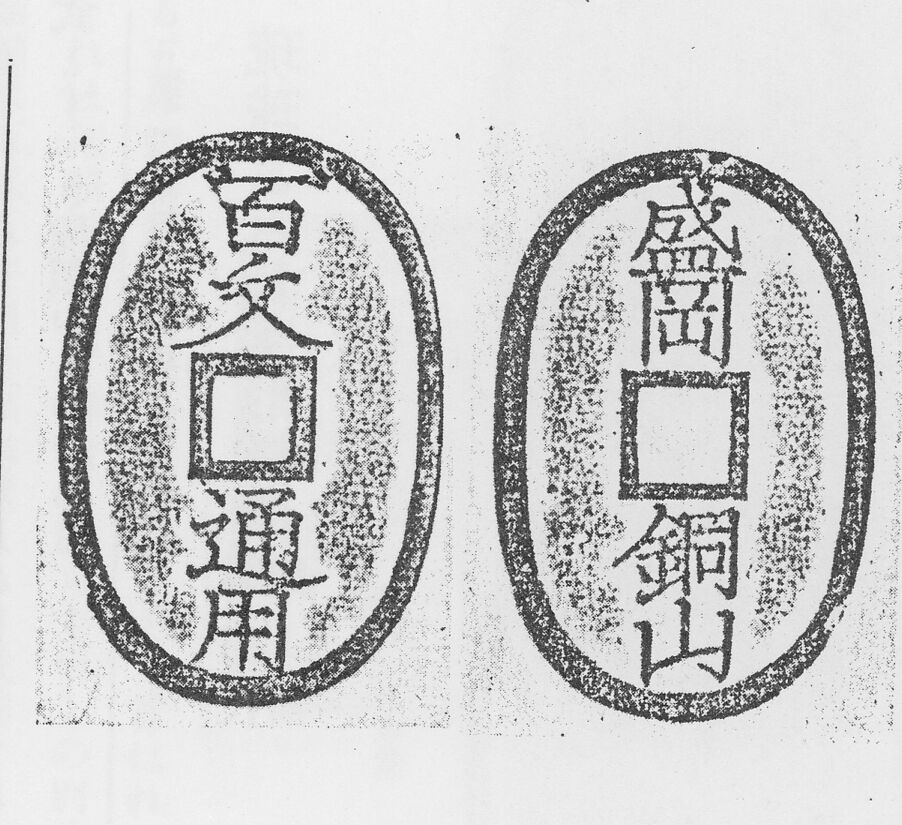 百文
通用
盛岡
銅山